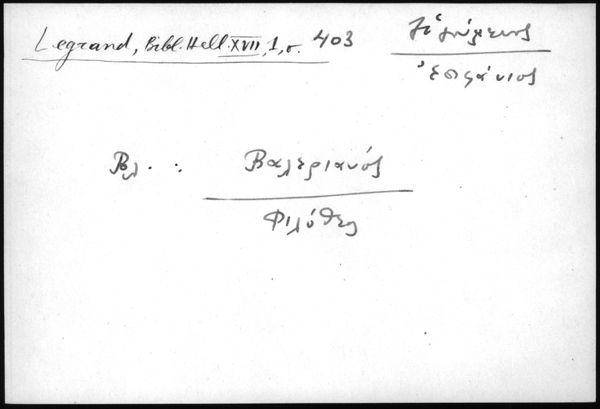 Legrand, Bibl. Hell. XVII, 1, σ. 403
Ἐπιφάνιος
Βλ. :
Βαλεριανός
Φιλόθεος